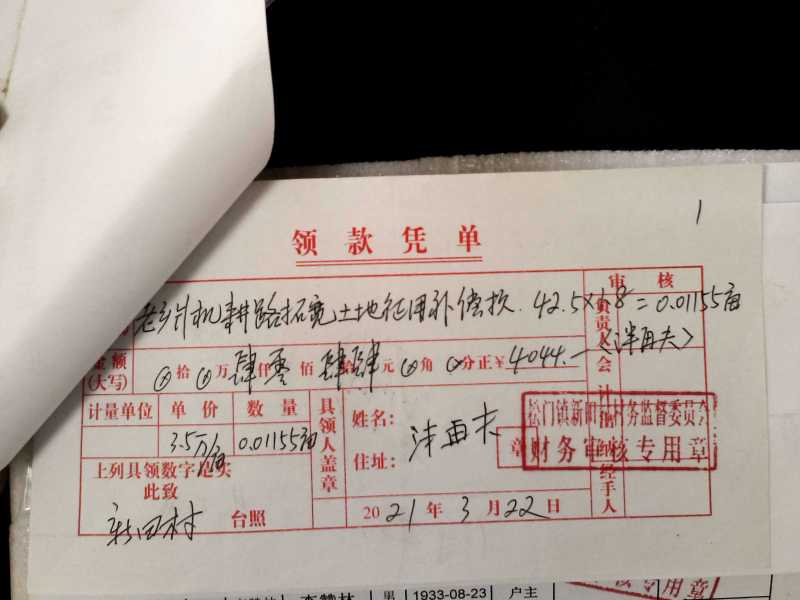 1
领款凭单
审核
机耕路拓宽土地征用补偿款. 42.5×1.8=0.01155亩
金额
(大写) 拾 万肆仟零佰肆拾肆元 角 分正¥4044.—
计量单位 单价 数量
3.5万/亩 0.01155亩
具领人盖章
姓名:
住址:
章
负责人 会计 经手人
财务审核专用章
上列具领数字是实
此致
新田村 台照
2021年3月22日
男 1933-08-23 户主
专用章